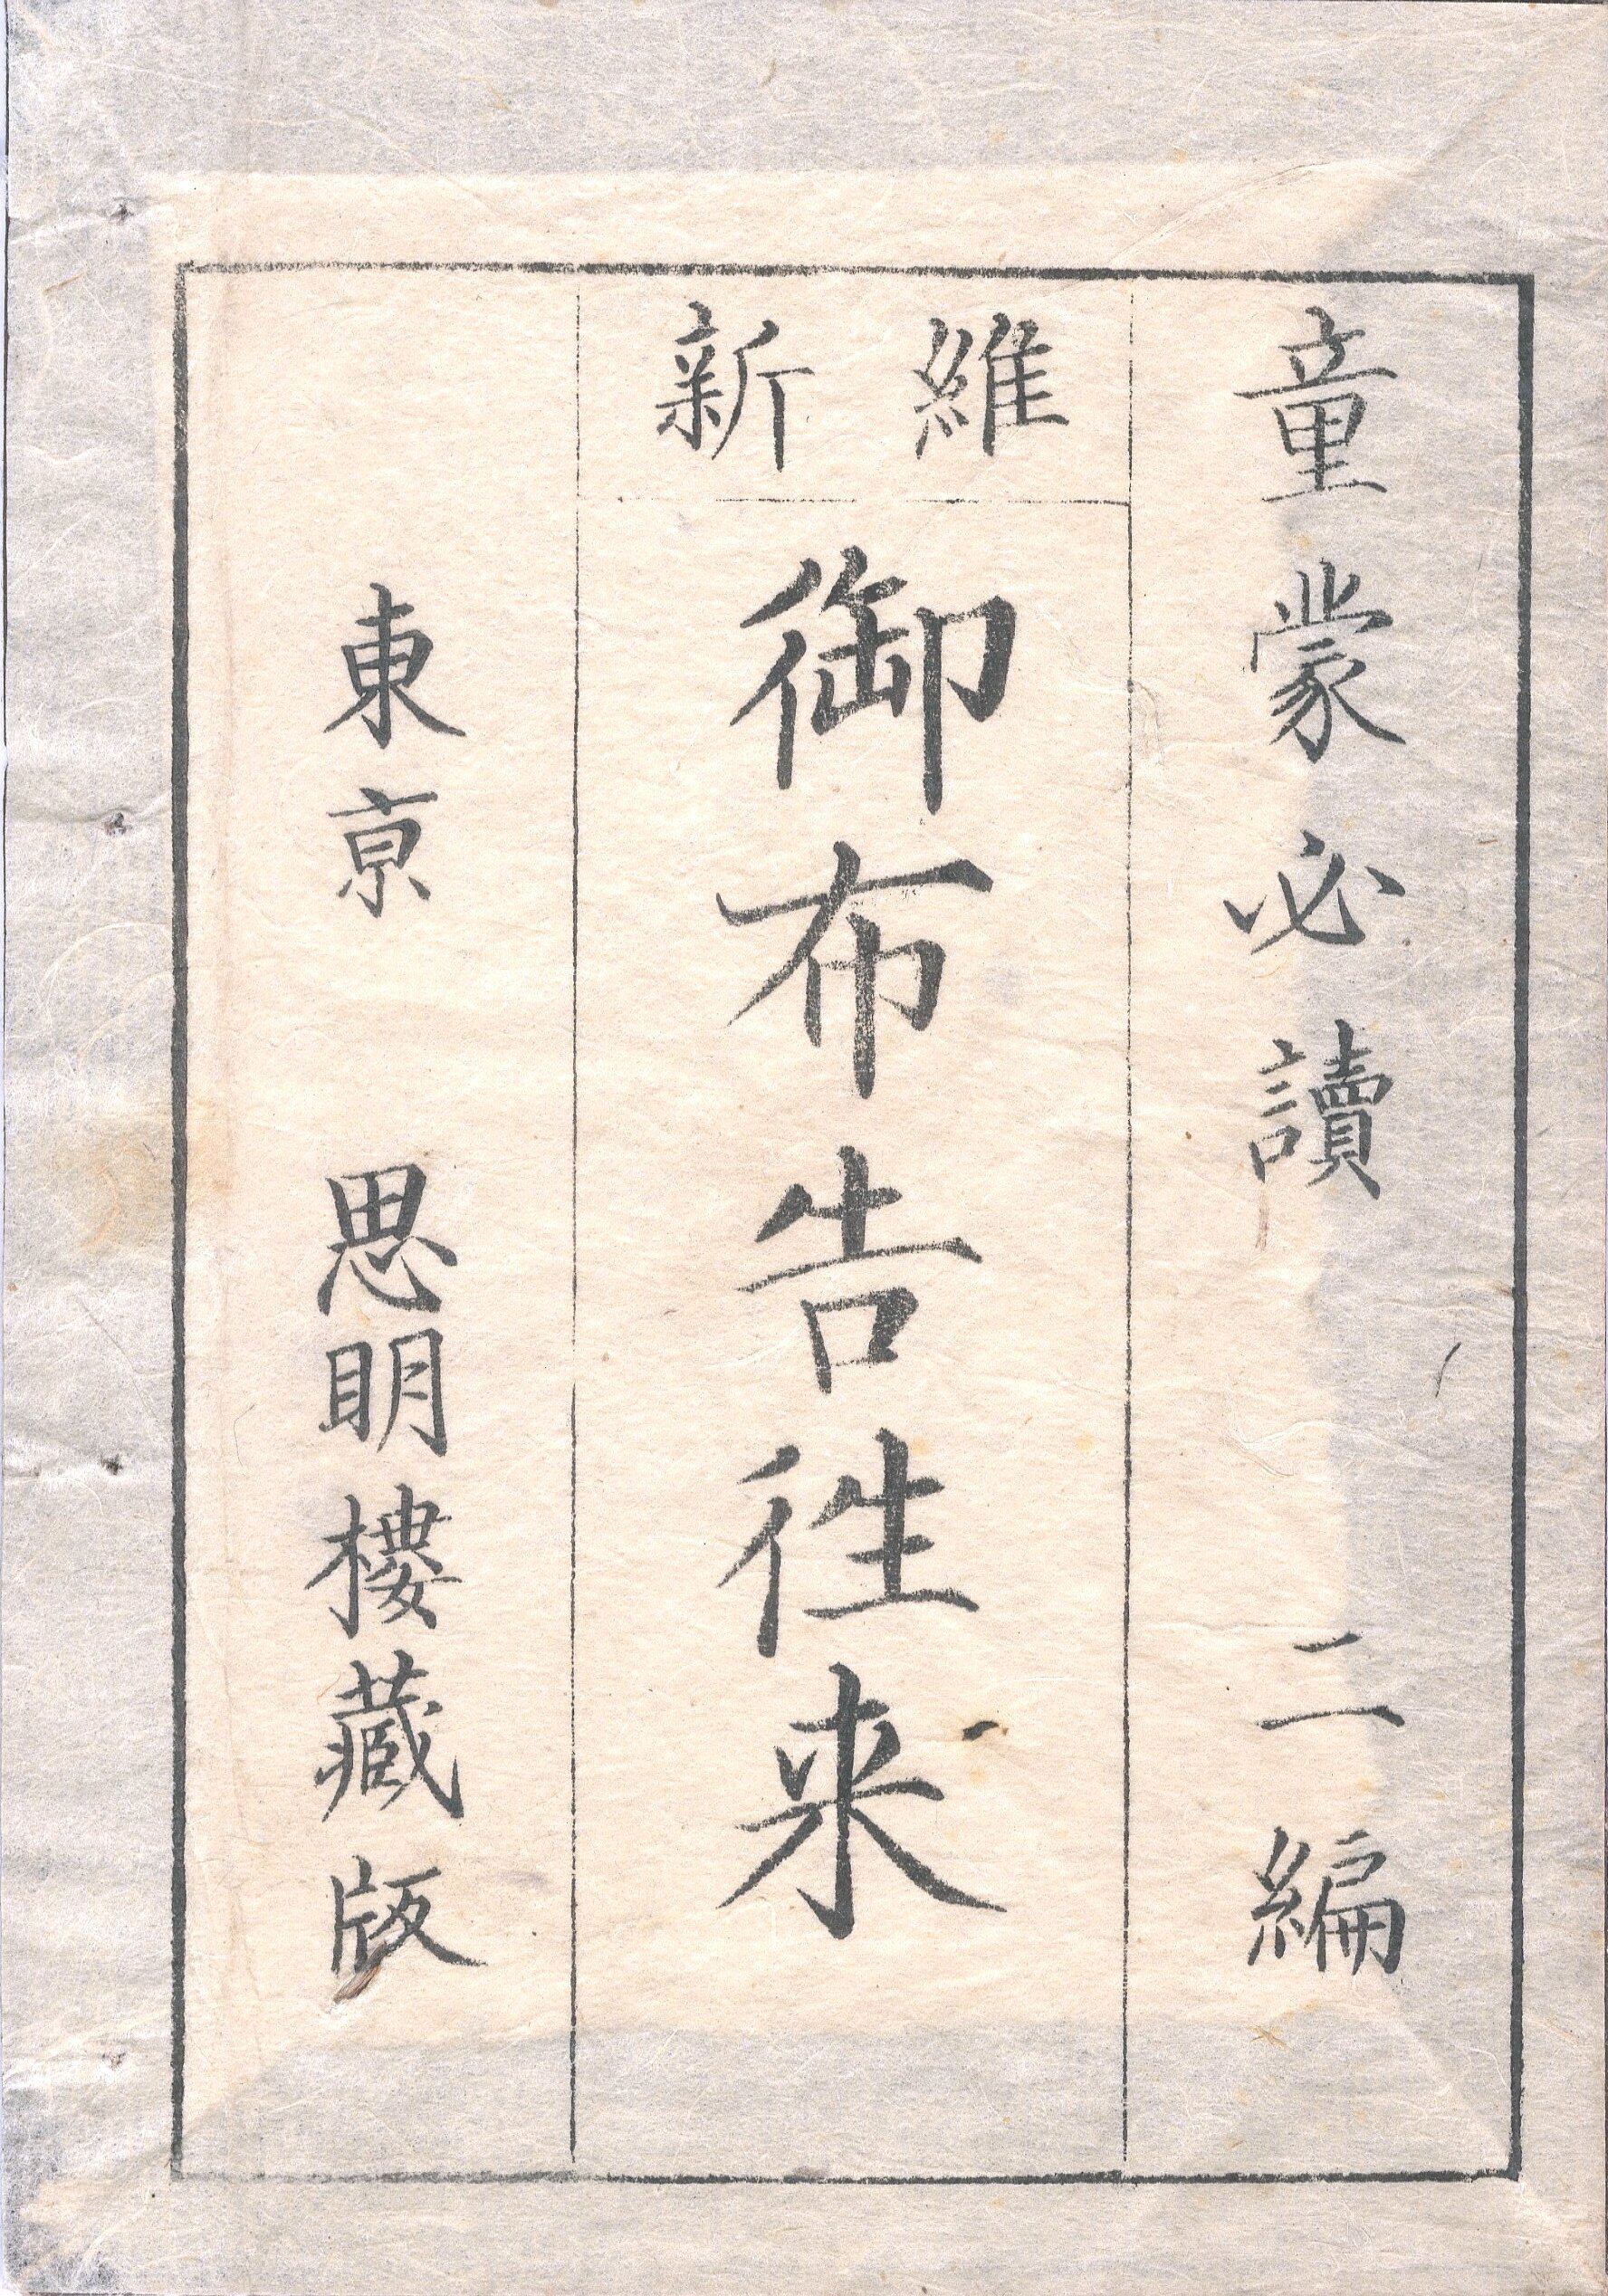 童蒙必讀 二編
維新
御布告徃来
東亰 思明樓藏版